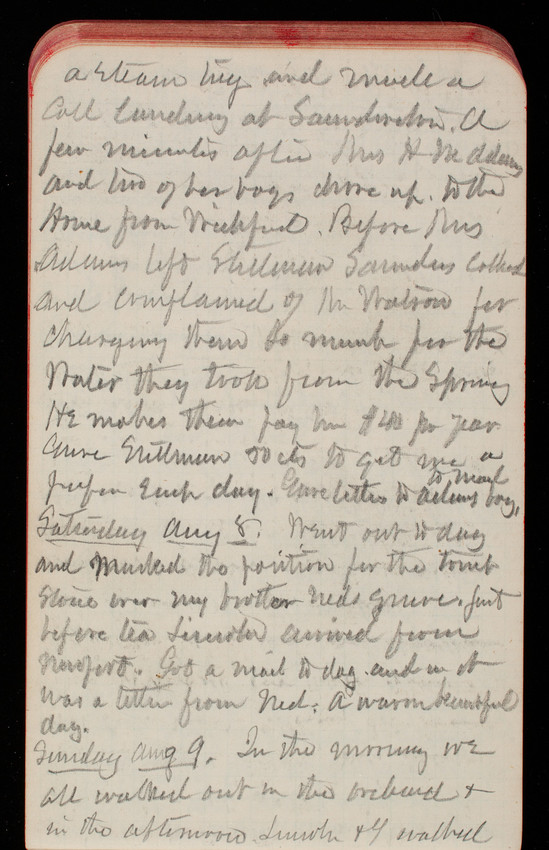 a steam tug and made a
call landing at Saunderstown. A
few minutes after Mrs H McAdams
and two of her boys drove up to the
House from Wickford. Before Mrs
Adams left Stillman Saunders called
and complained of Mr Watson for
charging them so much for the
Water they took from the Spring
He makes them pay him per year
Gave Stillman 50 cts to get me a
paper Each day. Gave letter to Adams boy,
to mail
Saturday Aug 8. Went out to day
and marked the position for the tomb
stone over my brother Ned's grave. Just
before tea Lincoln arrived from
Newport. Got a mail to day and in it
was a letter from Ned. A warm beautiful
day.
Sunday Aug 9. In the morning we
all walked out in the orchard +
in the afternoon Lincoln + I walked